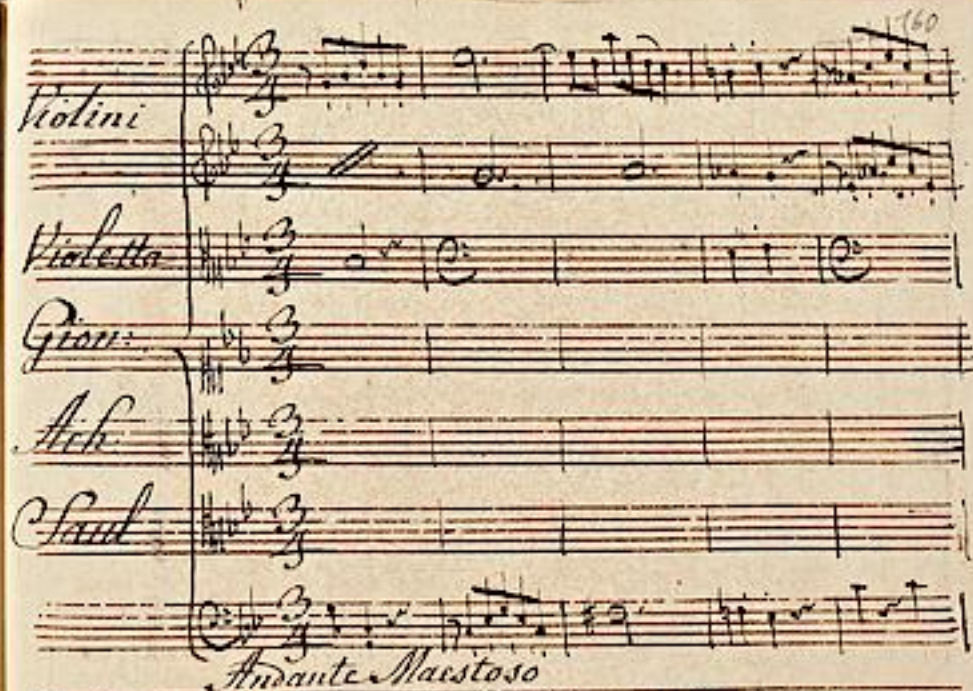 160
Violini
Violetta
Gion:
Ach:
Saul
Andante Maestoso